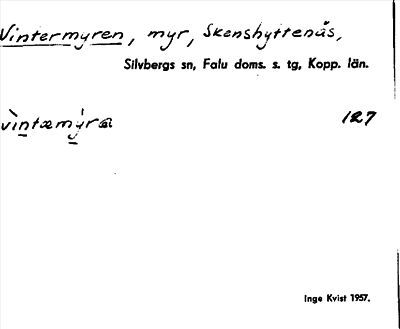 Vintermyren, myr, Skenshyttenäs,
Silvbergs sn, Falu doms. s. tg, Kopp. län.
vìntæmýra 127
Inge Kvist 1957.